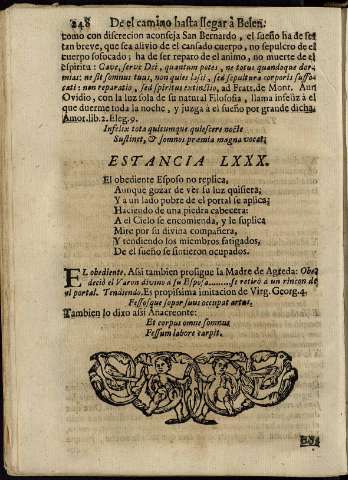 248 De el camino hasta llegar à Belen.
como con discrecion aconseja San Bernardo, el sueño ha de ser
tan breve, que sea alivio de el cansado cuerpo, no sepulcro de el
cuerpo sofocado; ha de ser reparo de el animo, no muerte de el
espiritu: Cave, serve Dei, quantum potes, ne totus quandoque dor-
mias: ne sit somnus tuus, non quies lassi, sed sepultura corporis suffo-
cati: non reparatio, sed spiritus extinctio, ad Fratr. de Mont. Aun
Ovidio, con la luz sola de su natural Filosofia, llama infeliz à el
que duerme toda la noche, y juzgà à el sueño por grande dicha,
Amor. lib. 2. Eleg. 9.
Infelix tota quicumque quiescere nocte
Sustinet, & somnos præmia magna vocat;
ESTANCIA LXXX.
El obediente Esposo no replica,
Aunque gozar de ver su luz quisiera,
Y a un lado pobre de el portal se aplica;
Haciendo de una piedra cabecera:
A el Cielo se encomienda, y le suplica
Mire por su divina compañera,
Y tendiendo los miembros fatigados,
De el sueño se sintieron ocupados.
EL obediente. Assi tambien prosigue la Madre de Agreda: Obe-
deciò el Varon divino à su Esposa........se retirò a un rincon de
el portal. Tendiendo. Es propissima imitacion de Virg. Georg. 4.
Fessosque sopor suus occupat artus.
Tambien lo dixo assi Anacreonte:
Et corpus omne somnus
Fessum labore carpit.